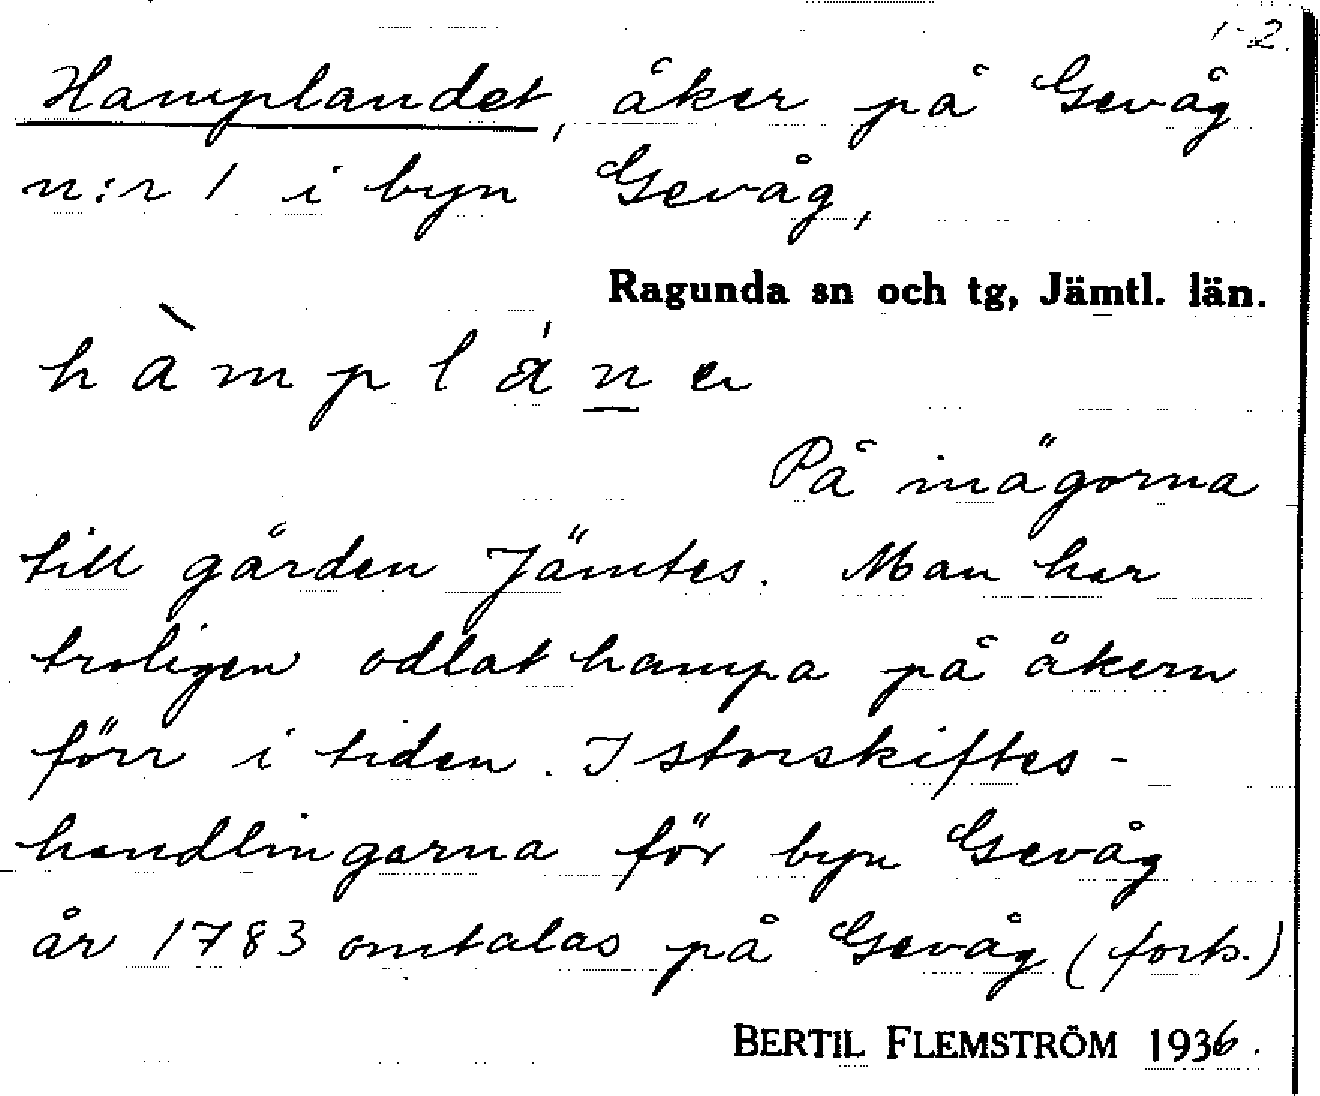 1-2.
Hamplandet, åker på Gevåg
n:r 1 i byn Gevåg,
Ragunda sn och tg, Jämtl. län.
hàmplánₑ
På inägorna
till gården Jämtes. Man har
troligen odlat hampa på åkern
förr i tiden. I storskiftes-
handlingarna för byn Gevåg
år 1783 omtalas på Gevåg (forts.)
BERTIL FLEMSTRÖM 1936.